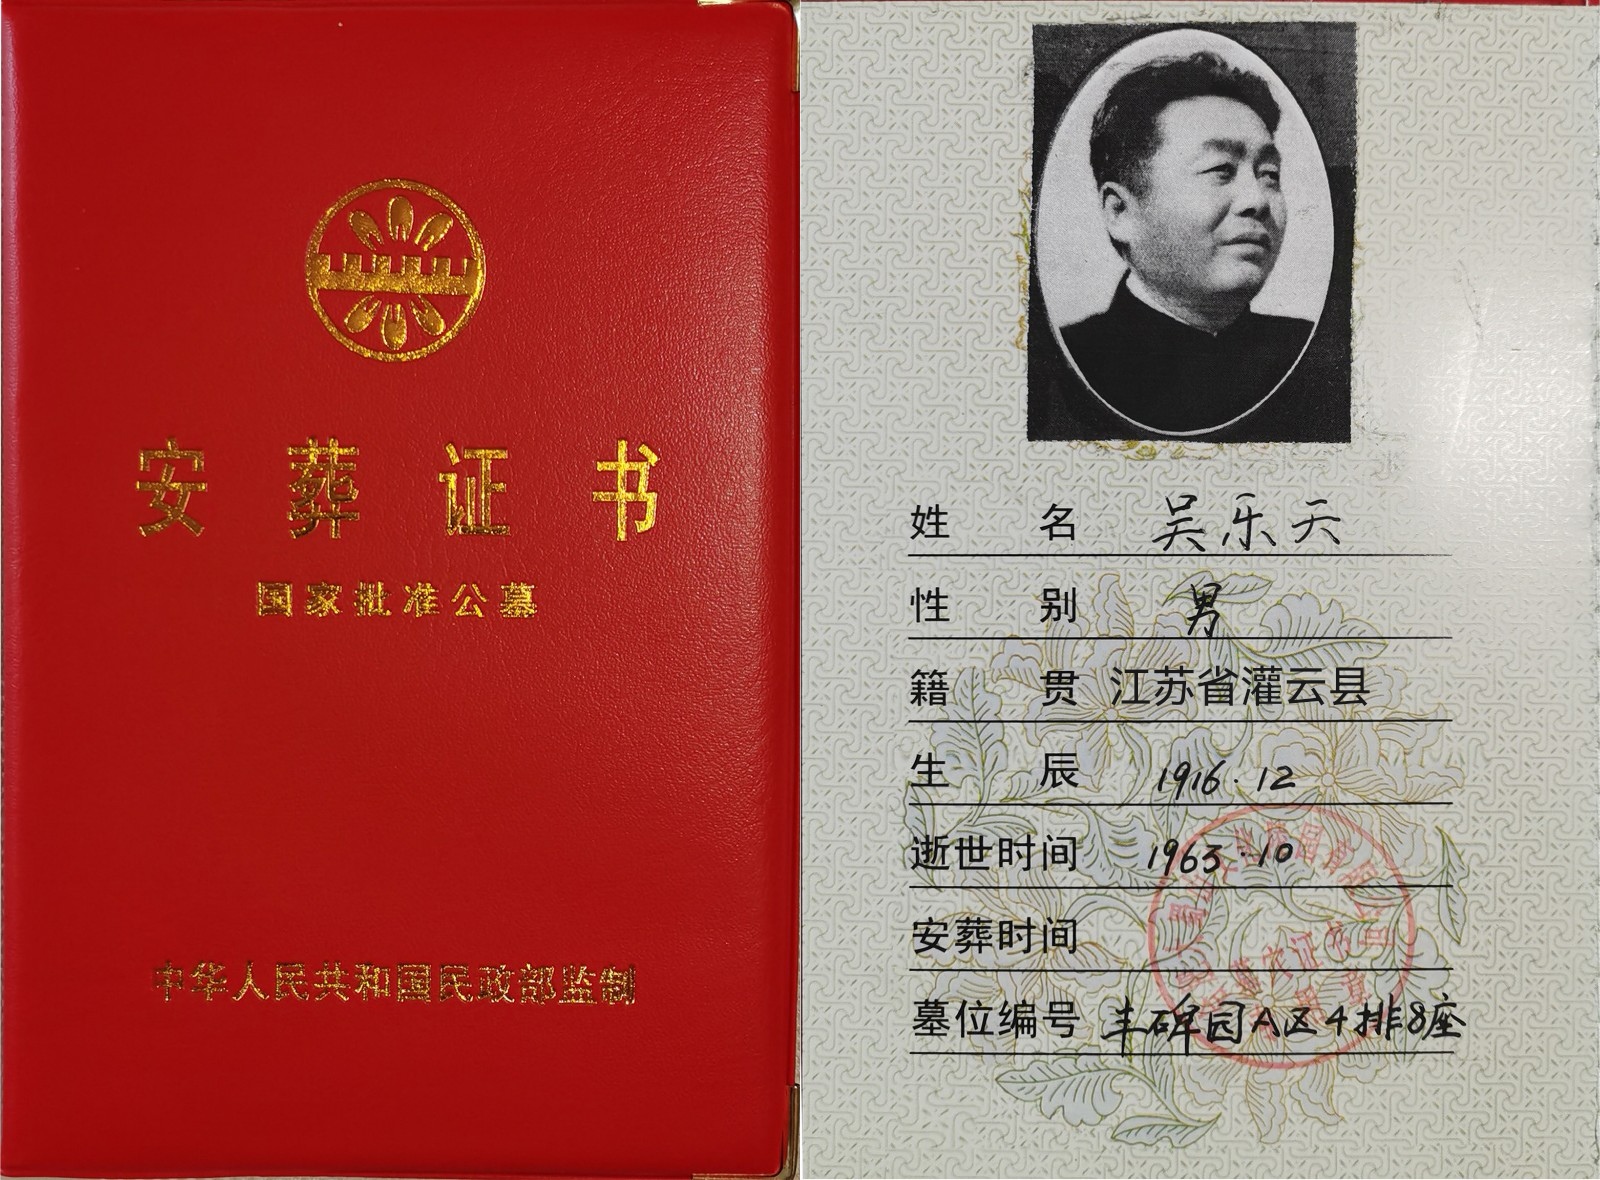 安葬证书
国家批准公墓
中华人民共和国民政部监制
姓名 吴乐天
性别 男
籍贯 江苏省灌云县
生辰 1916.12
逝世时间 1963.10
安葬时间
墓位编号 丰碑园A区4排8座